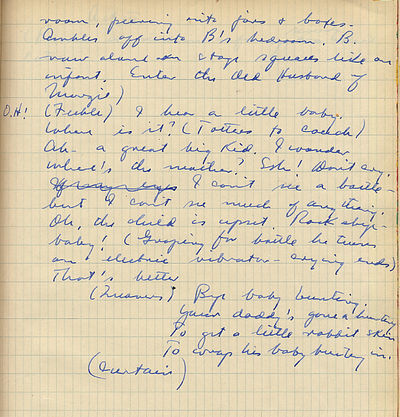 room, peering into jars & boxes.
Ambles off into B's bedroom. B.
now alone on stage squeaks like an
infant. Enter the Old Husband of
Margie)
O.H! (Feeble) I hear a little baby.
Where is it? (Totters to couch)
Ah - a great big kid. I wonder
where's the mother? Ssh! Don't cry.
I can't see a bottle -
but I can't see much of anything.
Oh, the child is upset. Rock abye -
baby! (Groping for bottle he turns
on electric vibrator - crying ends)
That's better
(Quavers) Bye baby bunting,
Your daddy's gone a hunting
To get a little rabbit skin
To wrap his baby bunting in.
(Curtain)